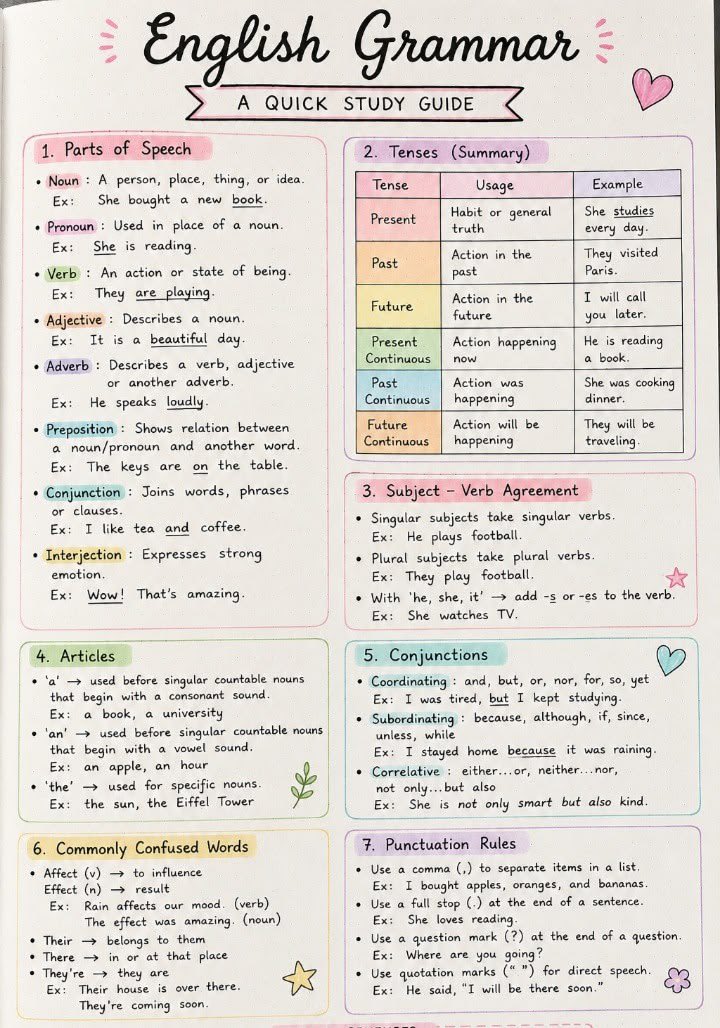 English Grammar
A QUICK STUDY GUIDE
1. Parts of Speech
• Noun : A person, place, thing, or idea.
Ex: She bought a new book.
• Pronoun : Used in place of a noun.
Ex: She is reading.
• Verb : An action or state of being.
Ex: They are playing.
• Adjective : Describes a noun.
Ex: It is a beautiful day.
• Adverb : Describes a verb, adjective
or another adverb.
Ex: He speaks loudly.
• Preposition : Shows relation between
a noun/pronoun and another word.
Ex: The keys are on the table.
• Conjunction : Joins words, phrases
or clauses.
Ex: I like tea and coffee.
• Interjection : Expresses strong
emotion.
Ex: Wow! That's amazing.
2. Tenses (Summary)
Tense Usage Example
Present Habit or general truth She studies every day.
Past Action in the past They visited Paris.
Future Action in the future I will call you later.
Present Continuous Action happening now He is reading a book.
Past Continuous Action was happening She was cooking dinner.
Future Continuous Action will be happening They will be traveling.
3. Subject – Verb Agreement
• Singular subjects take singular verbs.
Ex: He plays football.
• Plural subjects take plural verbs.
Ex: They play football.
• With 'he, she, it' → add -s or -es to the verb.
Ex: She watches TV.
4. Articles
• 'a' → used before singular countable nouns
that begin with a consonant sound.
Ex: a book, a university
• 'an' → used before singular countable nouns
that begin with a vowel sound.
Ex: an apple, an hour
• 'the' → used for specific nouns.
Ex: the sun, the Eiffel Tower
5. Conjunctions
• Coordinating : and, but, or, nor, for, so, yet
Ex: I was tired, but I kept studying.
• Subordinating : because, although, if, since,
unless, while
Ex: I stayed home because it was raining.
• Correlative : either...or, neither...nor,
not only...but also
Ex: She is not only smart but also kind.
6. Commonly Confused Words
• Affect (v) → to influence
Effect (n) → result
Ex: Rain affects our mood. (verb)
The effect was amazing. (noun)
• Their → belongs to them
• There → in or at that place
• They're → they are
Ex: Their house is over there.
They're coming soon.
7. Punctuation Rules
• Use a comma (,) to separate items in a list.
Ex: I bought apples, oranges, and bananas.
• Use a full stop (.) at the end of a sentence.
Ex: She loves reading.
• Use a question mark (?) at the end of a question.
Ex: Where are you going?
• Use quotation marks (“ ”) for direct speech.
Ex: He said, “I will be there soon.”